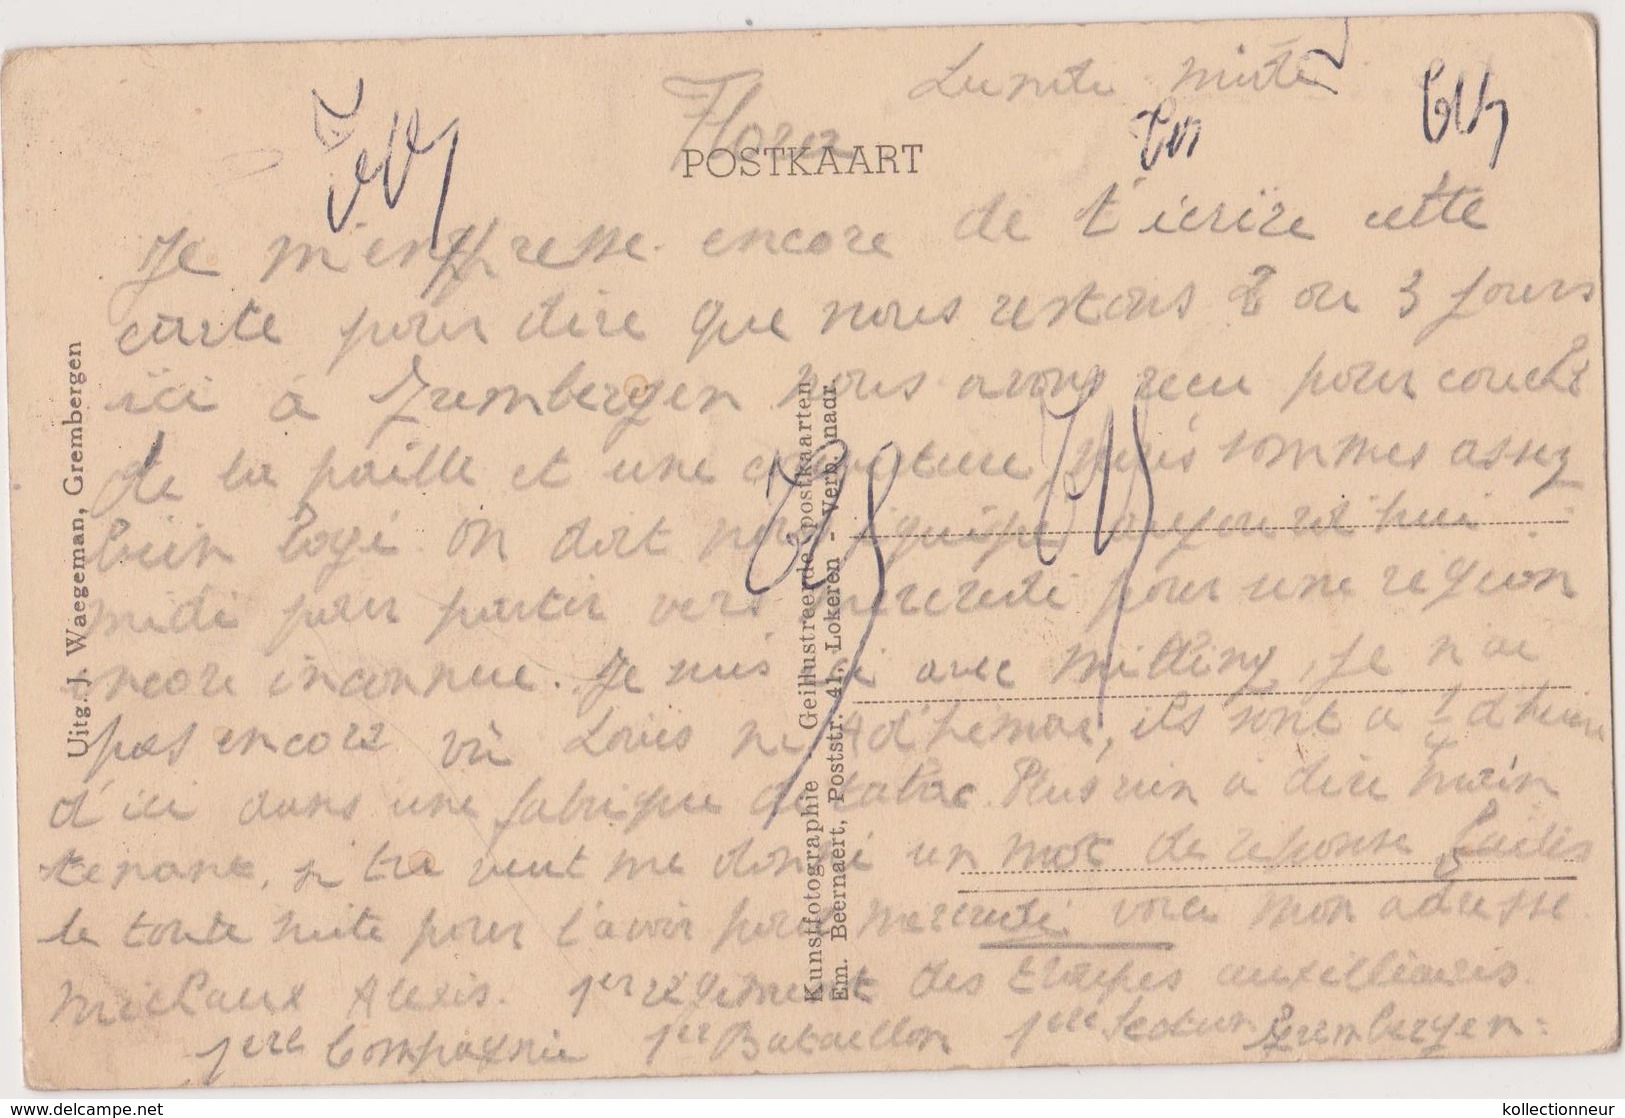 Lundi
POSTKAART
Je m'empresse encore de t'ecrire cette
carte pour dire que nous restons 2 ou 3 jours
ici à Grembergen nous avons recu pour couché
de la paille et une couverture, nous sommes assez
bien logé. On doit nous équipé aujourd'hui
midi pour partir vers mercredi pour une region
encore inconnue. Je suis ici avec je n'ai
pas encore vu Louis ni Adhemar, ils sont à 1/4 d'heure
d'ici dans une fabrique de tabac. Plus rien à dire main
tenant, si tu veut me donné un mot de reponse
le toute suite pour l'avoir pour mercredi voici mon adresse
Michaux Alexis. 1er regiment des Etapes auxilliairis
1ere Compagnie 1er Bataillon 1ere Section Grembergen.
Uitg. J. Waegeman, Grembergen
Kunstfotographie - Geïllustreerde postkaarten
Em. Beernaert, Poststr. 41, Lokeren - Verb. nadr.
kollectionneur